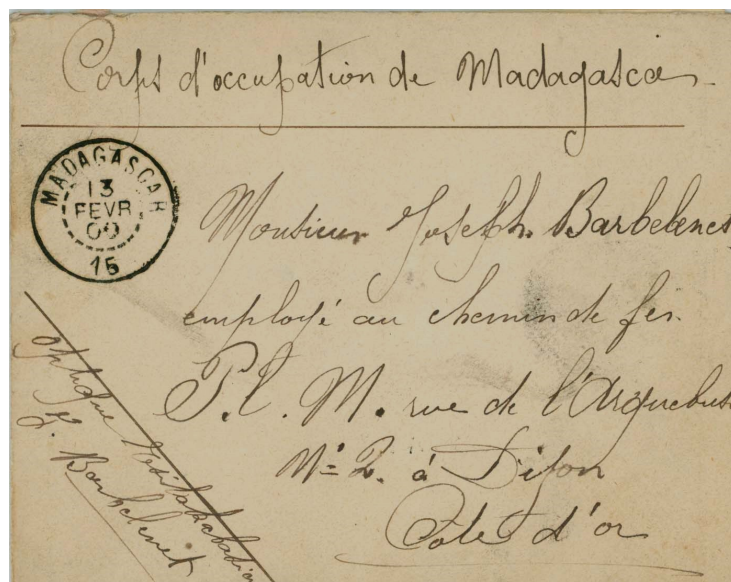 Corps d'occupation de Madagascar
MADAGASCAR
13
FEVR
00
15
Monsieur Joseph Barbelenet
employé au chemin de fer
P. L. M. rue de l'Arquebuse
N° 2. à Dijon
Côte d'or
Optique
J. Barbelenet